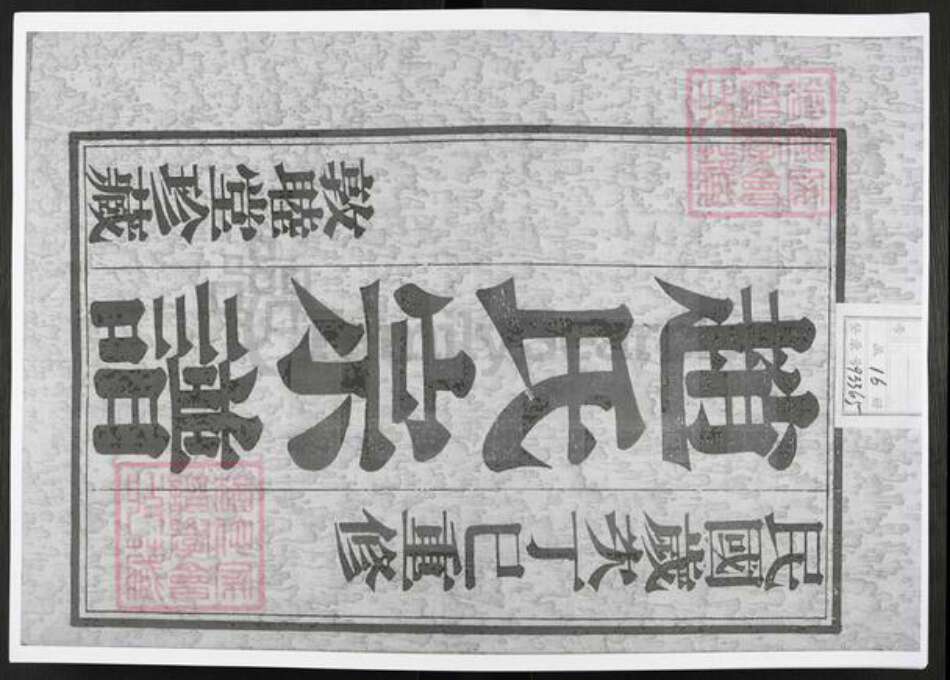 民國歲次丁巳重修
黃氏宗譜
敦睦堂珍藏
16
93365